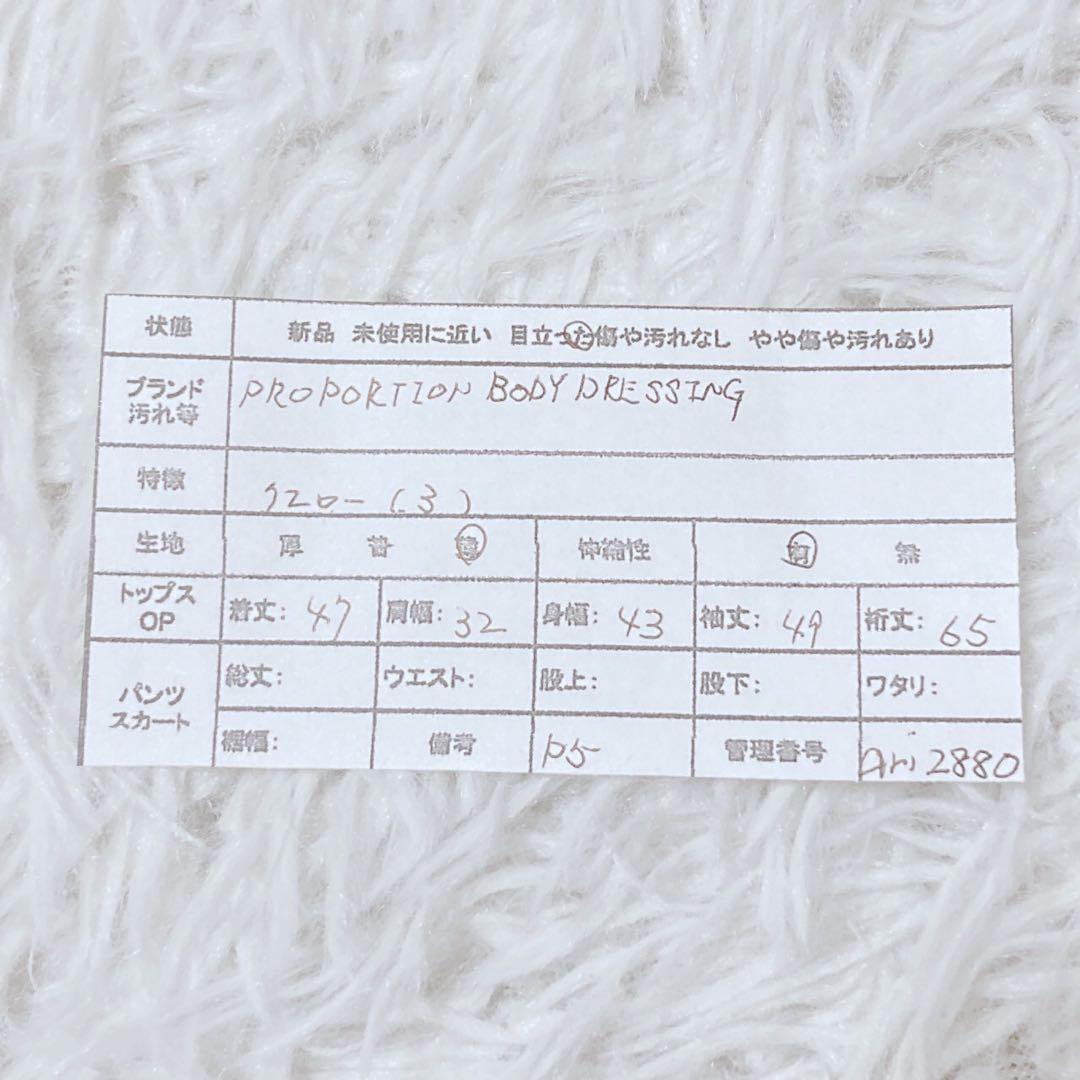 状態 新品 未使用に近い 目立った傷や汚れなし やや傷や汚れあり
ブランド 汚れ等 PROPORTION BODY DRESSING
特徴 (3)
生地 厚 普 薄 伸縮性 有 無
トップス OP 着丈: 47 肩幅: 32 身幅: 43 袖丈: 49 裄丈: 65
パンツ スカート 総丈: ウエスト: 股上: 股下: ワタリ:
裾幅: 備考 P5 管理番号 Ari 2880